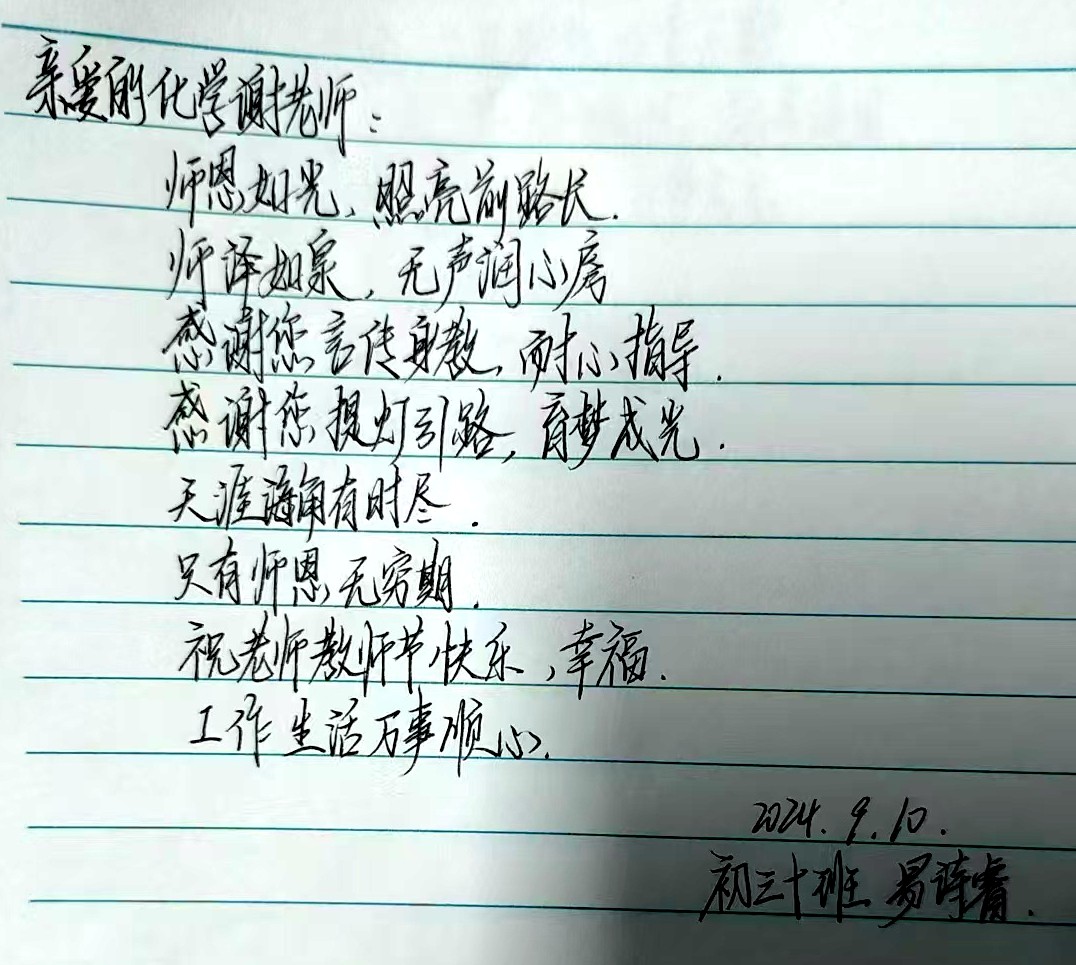 亲爱的化学谢老师：
师恩如光、照亮前路长.
师泽如泉，无声润心房
感谢您言传身教，耐心指导.
感谢您提灯引路，育梦成光.
天涯海角有时尽.
只有师恩无穷期.
祝老师教师节快乐，幸福.
工作生活万事顺心.
2024.9.10.
初三十班 易诗睿.